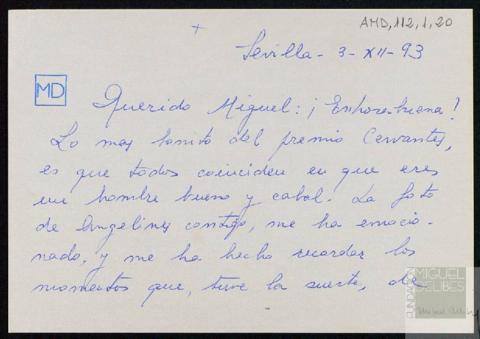 AMD, 112, 1, 20
+
Sevilla - 3 - XII - 93
MD
Querido Miguel: ¡Enhorabuena!
Lo mas bonito del premio Cervantes,
es que todos coinciden en que eres
un hombre bueno y cabal. La foto
de Angelines contigo, me ha emocio-
nado, y me ha hecho recordar los
momentos que, tuve la suerte, de
FUNDACIÓN
MIGUEL
DELIBES